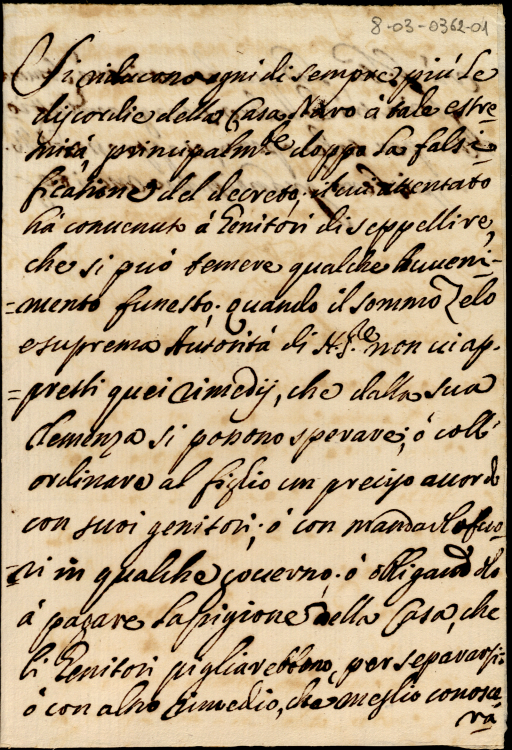 8-03-0362-01
Si riducono ogni dì sempre più le
discordie della Casa Naro à tale estre-
mità, principalm.te doppo la falsi-
ficatione del decreto, il cui attentato
hà convenuto á Genitori di seppellire,
che si può temere qualche avveni-
=mento funesto; quando il sommo Zelo
e suprema Autorità di N. S.re non ci ap-
=presti quei rimedij, che dalla sua
Clemenza si ponono sperare; ó coll'
ordinare al figlio un preciso accordo
con suoi genitori; ó con mandarlo fuo-
=ri in qualche governo; ó obligandolo
á pagare la pigione della Casa, che
li Genitori pigliarebbono, per separarsi;
ó con altro rimedio, che meglio conosce
rà